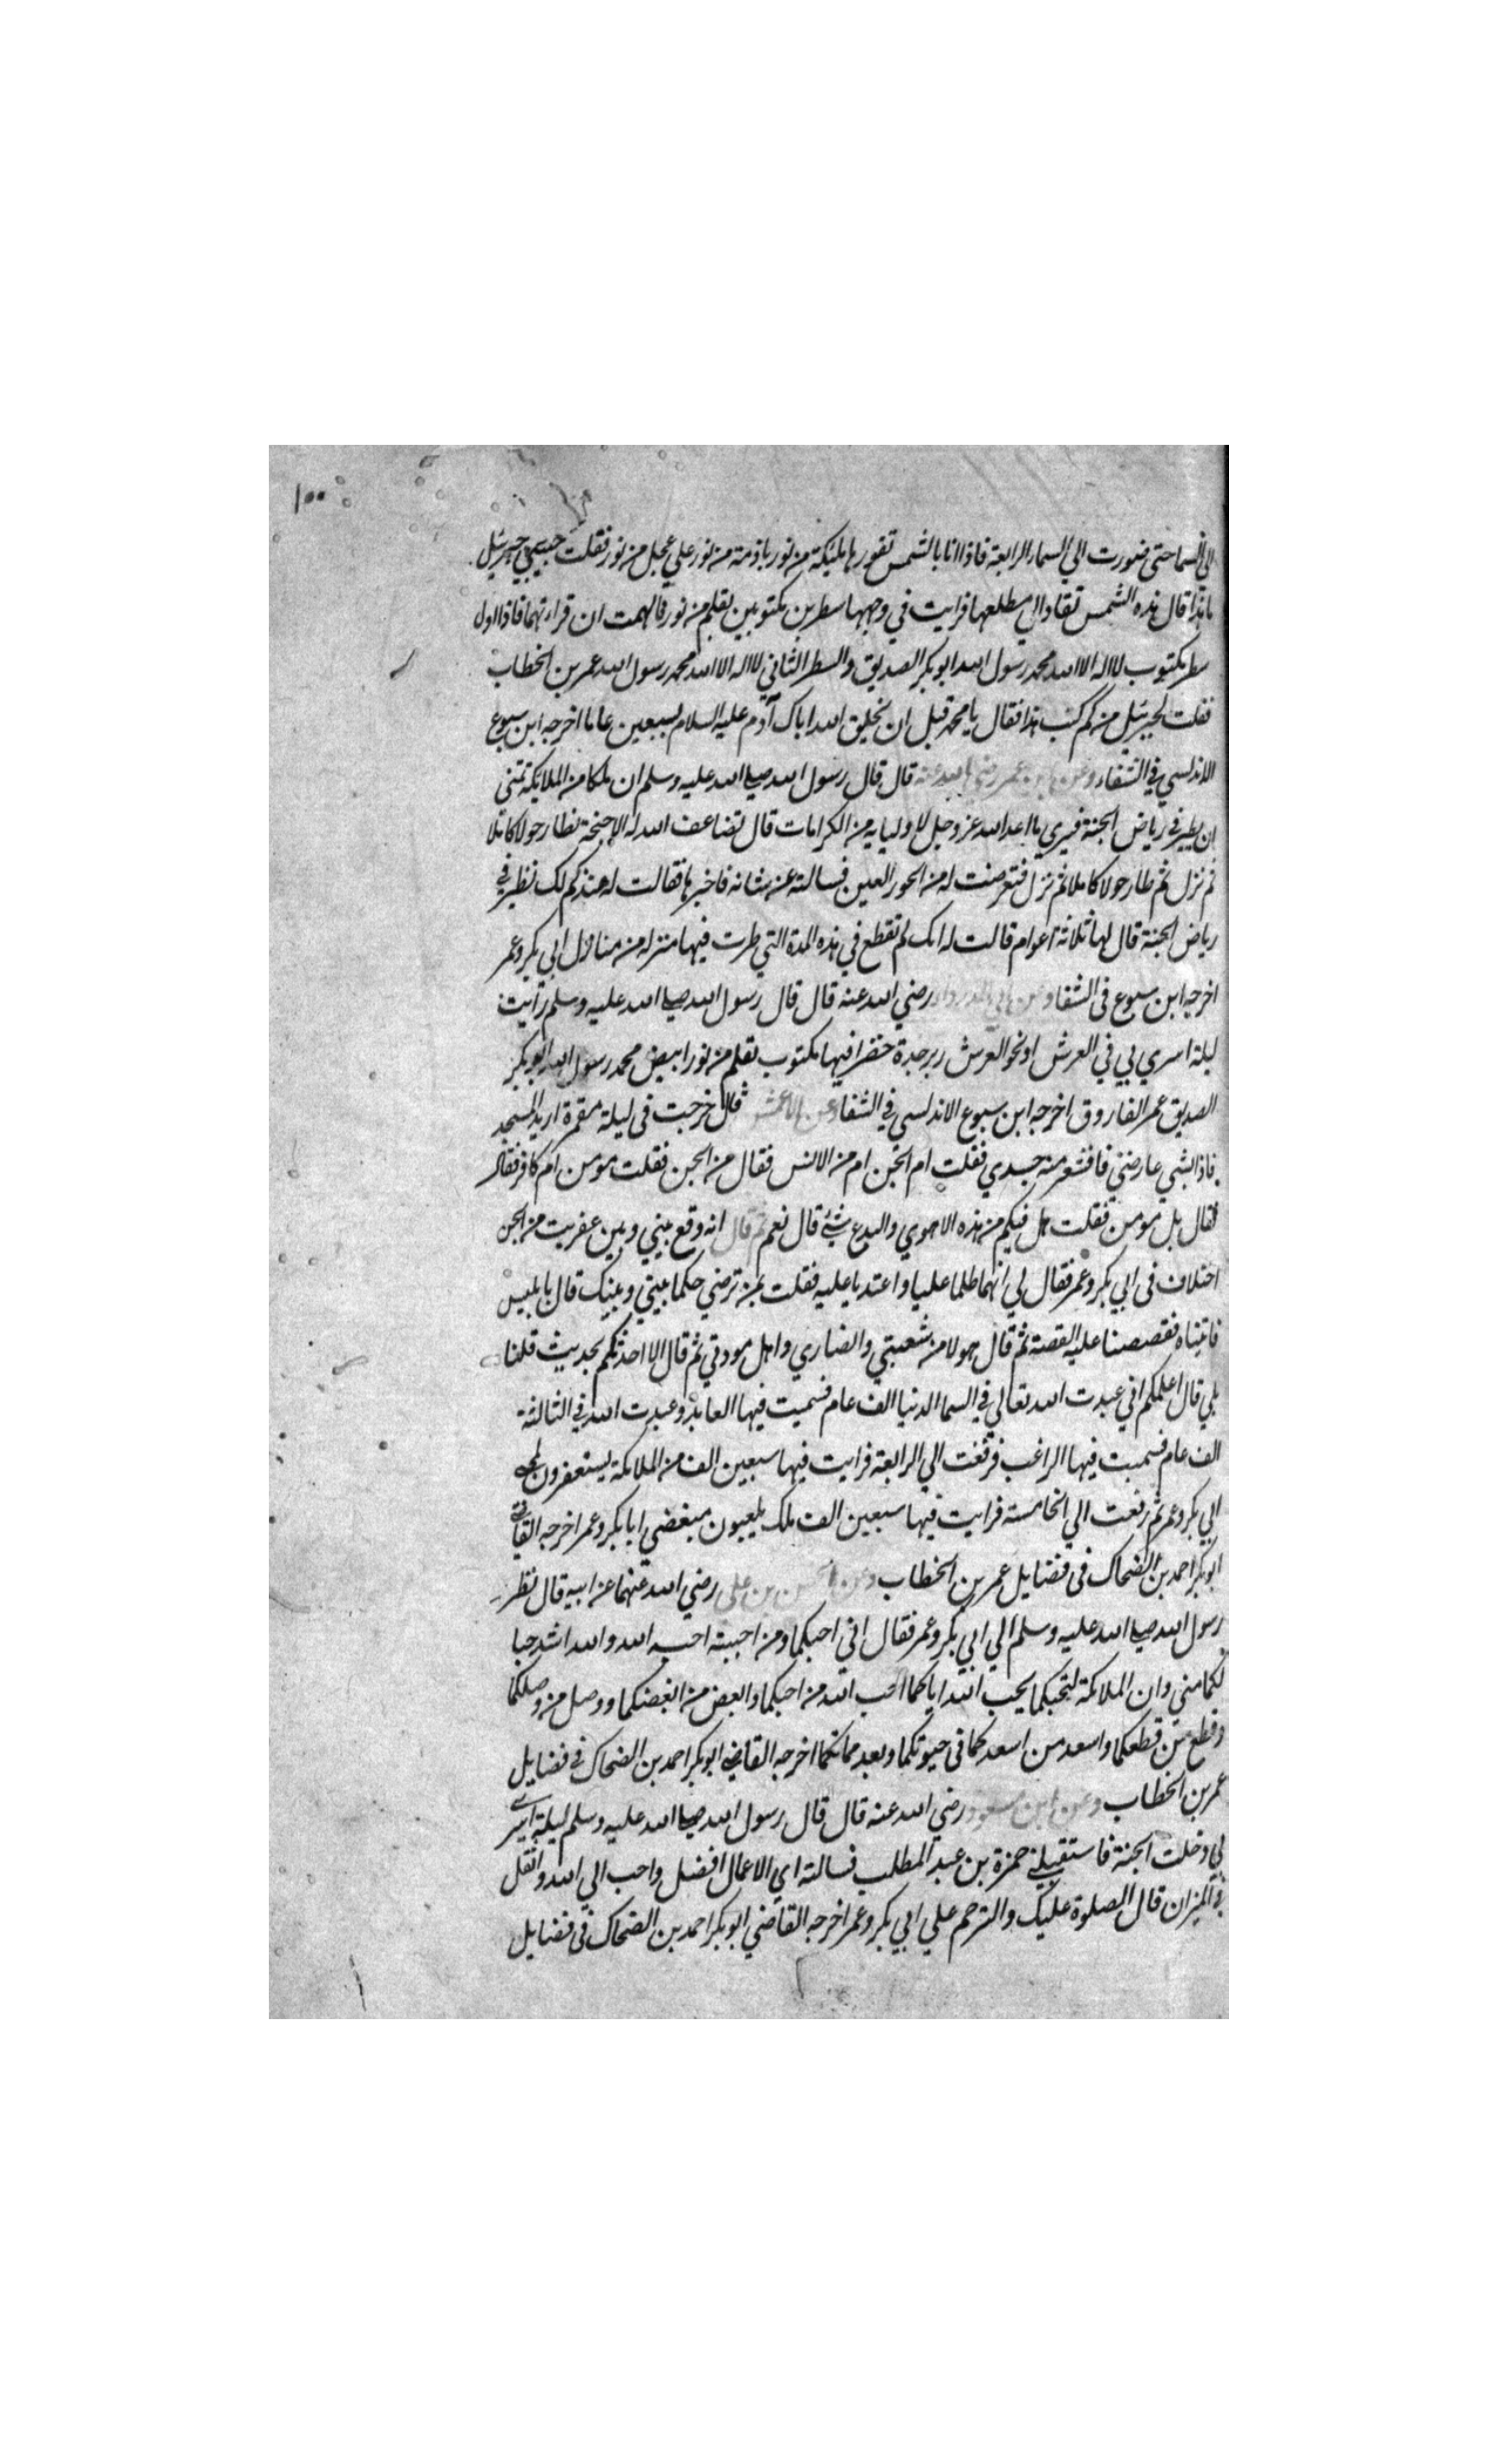 ١٠٠
الي السما حتى صورت الي السمار الرابعة فاذا انا بالشمس تقورها مليكة من نور بازمة من نور علي عجل من نور فقلت حبيبي جبريل
ما هذا قال هذه الشمس تقاد الي مطلعها فرايت في وجهها سطرين مكتوبين بقلم من نور فالهمت ان قراءتهما فاذا اول
سطر مكتوب لا اله الا الله محمد رسول الله ابو بكر الصديق والسطر الثاني لا اله الا الله محمد رسول الله عمر بن الخطاب
فقلت لجبريل من كم كتب هذا فقال يا محمد قبل ان يخلق الله اباك آدم عليه السلام بسبعين عاما اخرجه ابن سبوع
الاندلسي في الشفاء وعن ابن عمر رضي الله عنه قال قال رسول الله صلى الله عليه وسلم ان ملكا من الملايكة تمنى
ان يطير في رياض الجنة فيري ما اعد الله عز وجل لاوليايه من الكرامات قال تضاعف الله له الاجنحة فطار حولا كاملا
ثم نزل ثم طار حولا كاملا ثم نزل فتعرضت له من الحور العين فسالته عن شانه فاخبرها فقالت له منذ كم لك تطير في
رياض الجنة قال لها ثلاثة اعوام قالت له انك لم تقطع في هذه المدة التي طرت فيها منزله من منازل ابي بكر وعمر
اخرجه ابن سبوع في الشفا وعن ابي الدرداء رضي الله عنه قال قال رسول الله صلى الله عليه وسلم رايت
ليلة اسري بي في العرش او نحو العرش زبرجدة خضرا فيها مكتوب بقلم من نور ابيض محمد رسول الله ابو بكر
الصديق عمر الفاروق اخرجه ابن سبوع الاندلسي في الشفا وعن الاعمش قال خرجت في ليلة مقمرة اريد المسجد
فاذا بشي عارضني فاقشعر منه جسدي فقلت ام الجن ام من الانس فقال من الجن فقلت مومن ام كافر فقال
فقال بل مومن فقلت هل فيكم من هذه الاهوي والبدع شئ قال نعم ثم قال انه وقع بيني وبين عفريت من الجن
اختلاف في ابي بكر وعمر فقال لي انهما ظلما عليا واعتديا عليه فقلت بمن ترضي حكما بيني وبينك قال بابليس
فاتيناه فقصصنا عليه القصة ثم قال هولا من شعيتي وانصاري واهل مودتي ثم قال الا احدثكم بحديث قلنا
بلي قال اعلمكم اني عبدت الله تعالي في السما الدنيا الف عام فسميت فيها العابد وعبدت الله في الثالثة
الف عام فسميت فيها الراغب فرفعت الي الرابعة فرايت فيها سبعين الف من الملايكة يستغفرون لمحبي
ابي بكر وعمر ثم رفعت الي الخامسة فرايت فيها سبعين الف ملك يلعبون مبغضي ابا بكر وعمر اخرجه القاضي
ابو بكر احمد بن الضحاك في فضايل عمر بن الخطاب وعن الحسن بن علي رضي الله عنهما عن ابيه قال نظر
رسول الله صلى الله عليه وسلم الي ابي بكر وعمر فقال اني احبكما ومن احببته احبه الله والله اشد حبا
لكما مني وان الملايكة لتحبكما يحب الله اياكما احب الله من احبكما وابغض من ابغضكما ووصل من وصلكما
وقطع من قطعكما واسعد من اسعدكما في حيوتكما وبعد مماتكما اخرجه القاضي ابو بكر احمد بن الضحاك في فضايل
عمر بن الخطاب وعن ابن مسعود رضي الله عنه قال قال رسول الله صلى الله عليه وسلم ليلة اسري
بي دخلت الجنة فاستقبلني حمزة بن عبد المطلب فسالته اي الاعمال افضل واحب الي الله واثقل
في الميزان قال الصلوة عليك والترحم علي ابي بكر وعمر اخرجه القاضي ابو بكر احمد بن الضحاك في فضايل